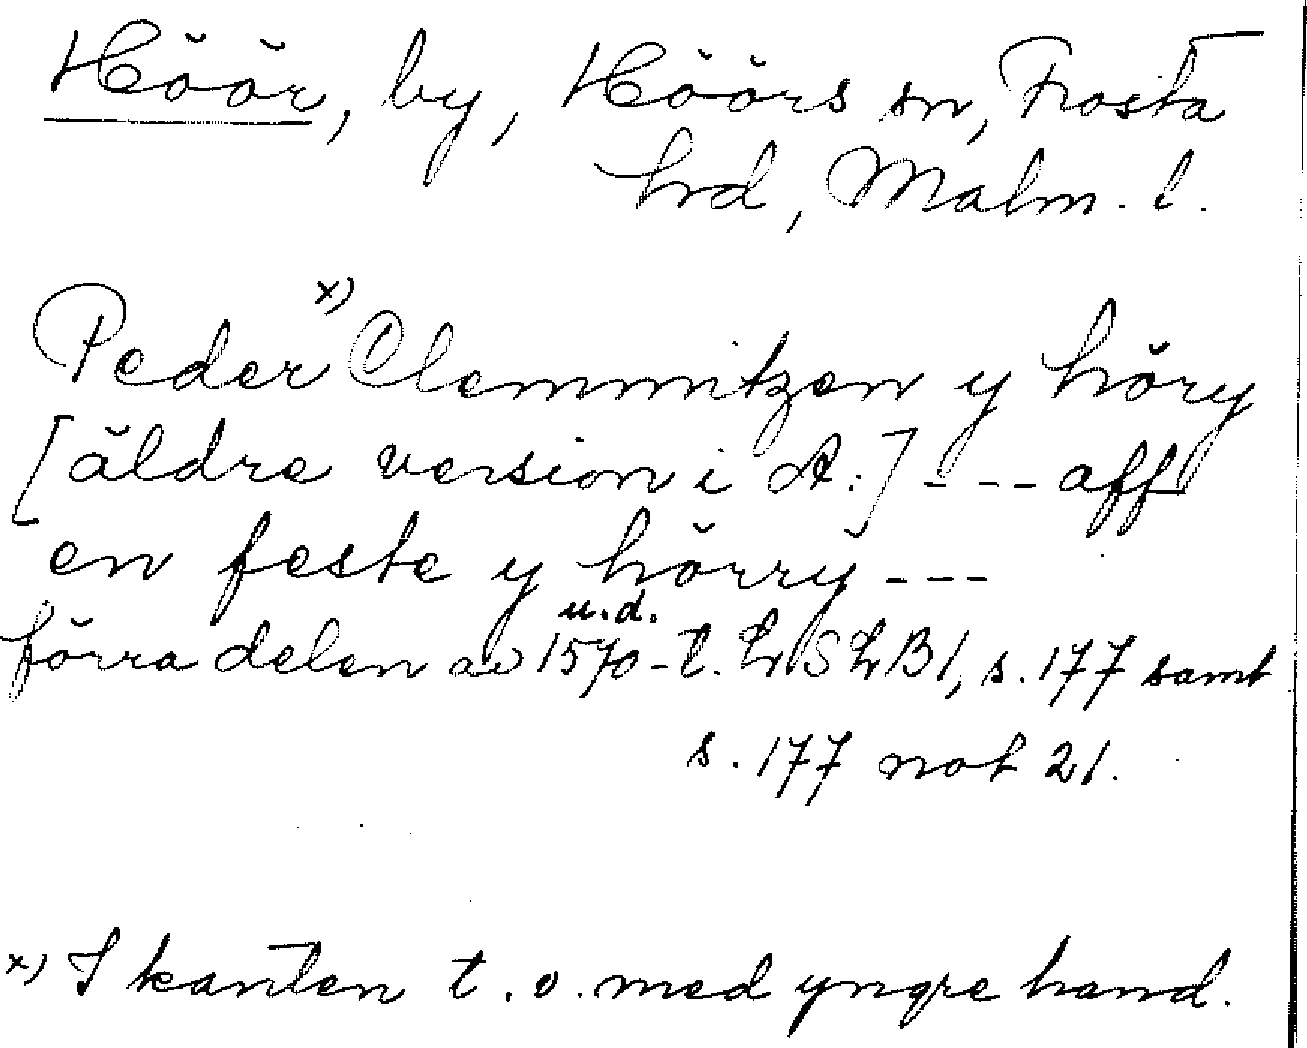 Höör, by, Höörs sn, Frosta
hrd, Malm. l.
Peder x) Clemmitzen y höry
[äldre version i A:] --- aff
en feste y hörry ---
u.d.
förra delen av 1570-t. LSLB1, s. 177 samt
s. 177 not 21.
x) I kanten t. o. med yngre hand.